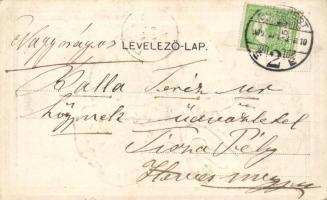 Nagyságos
LEVELEZŐ-LAP.
Kalla Teréz úr
högynek üdvözlettel
Tisza Pély
Heves megye
2